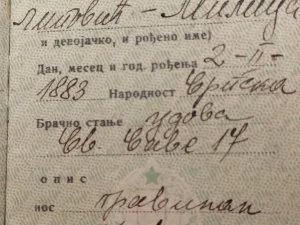 гловић - Милица
и девојачко, и рођено име)
Дан, месец и год. рођења 2-II-
1883 Народност Српска
Брачно стање удова
Св. Саве 17
опис
нос правилан